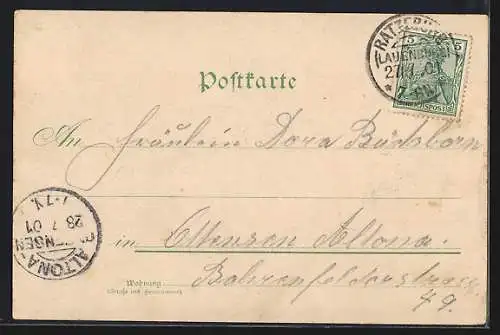 RATZEBURG
(LAUENBURG)
27.7.01
* 7-8N.
5 5
REICHSPOST
Postkarte
An Fräulein Dora Büdsborn
28.7.01
7-7V.
ALTONA-
OTTENSEN
in Ottensen Altona.
Wohnung
(Straße und Hausnummer)
Bahrenfelderstrasse
79.